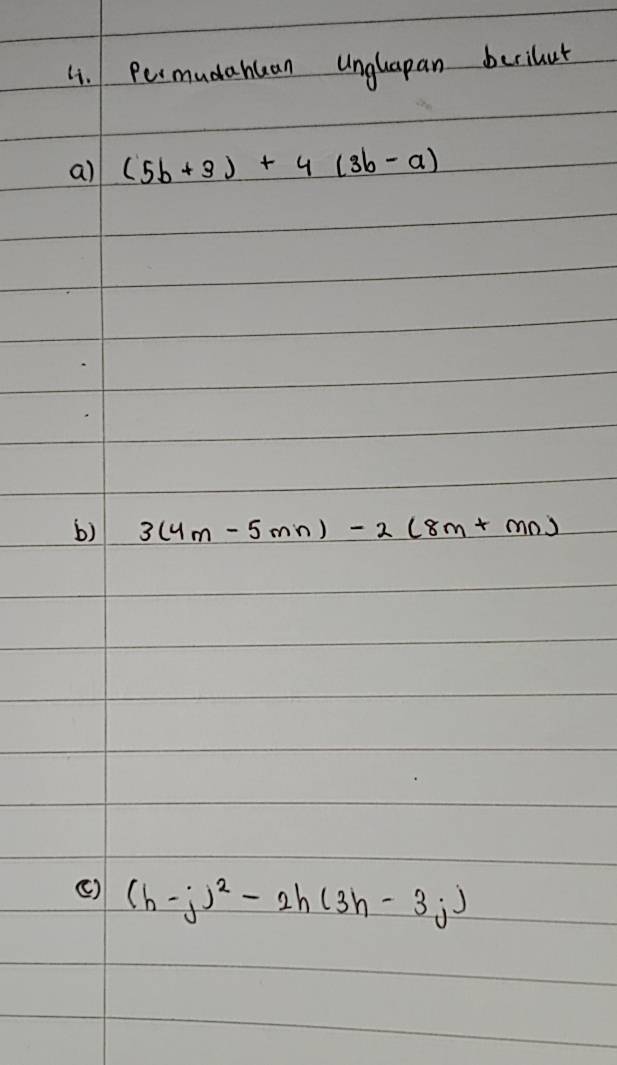 4. Permudahkan Ungkapan berikut
a) (5b + 3) + 4 (3b - a)
b) 3(4m - 5mn) - 2 (8m + mn)
c) (h - j)² - 2h(3h - 3j)